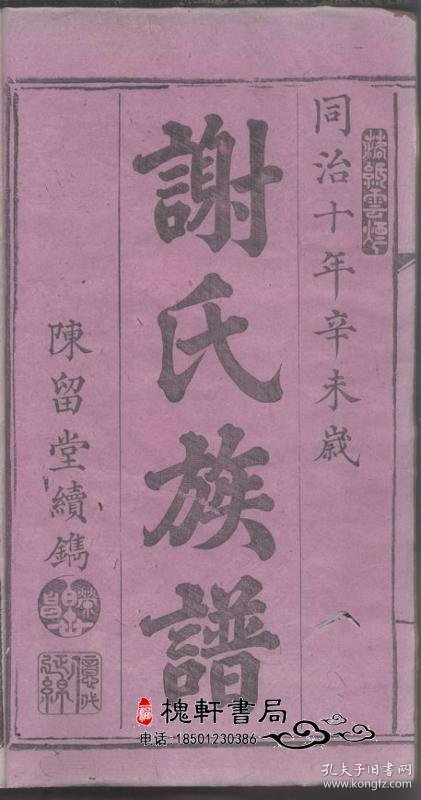 落紙雲煙
同治十年辛未歲
謝氏族譜
陳留堂續鐫
槐軒書局
电话 18501230386
孔夫子旧书网
www.kongfz.com